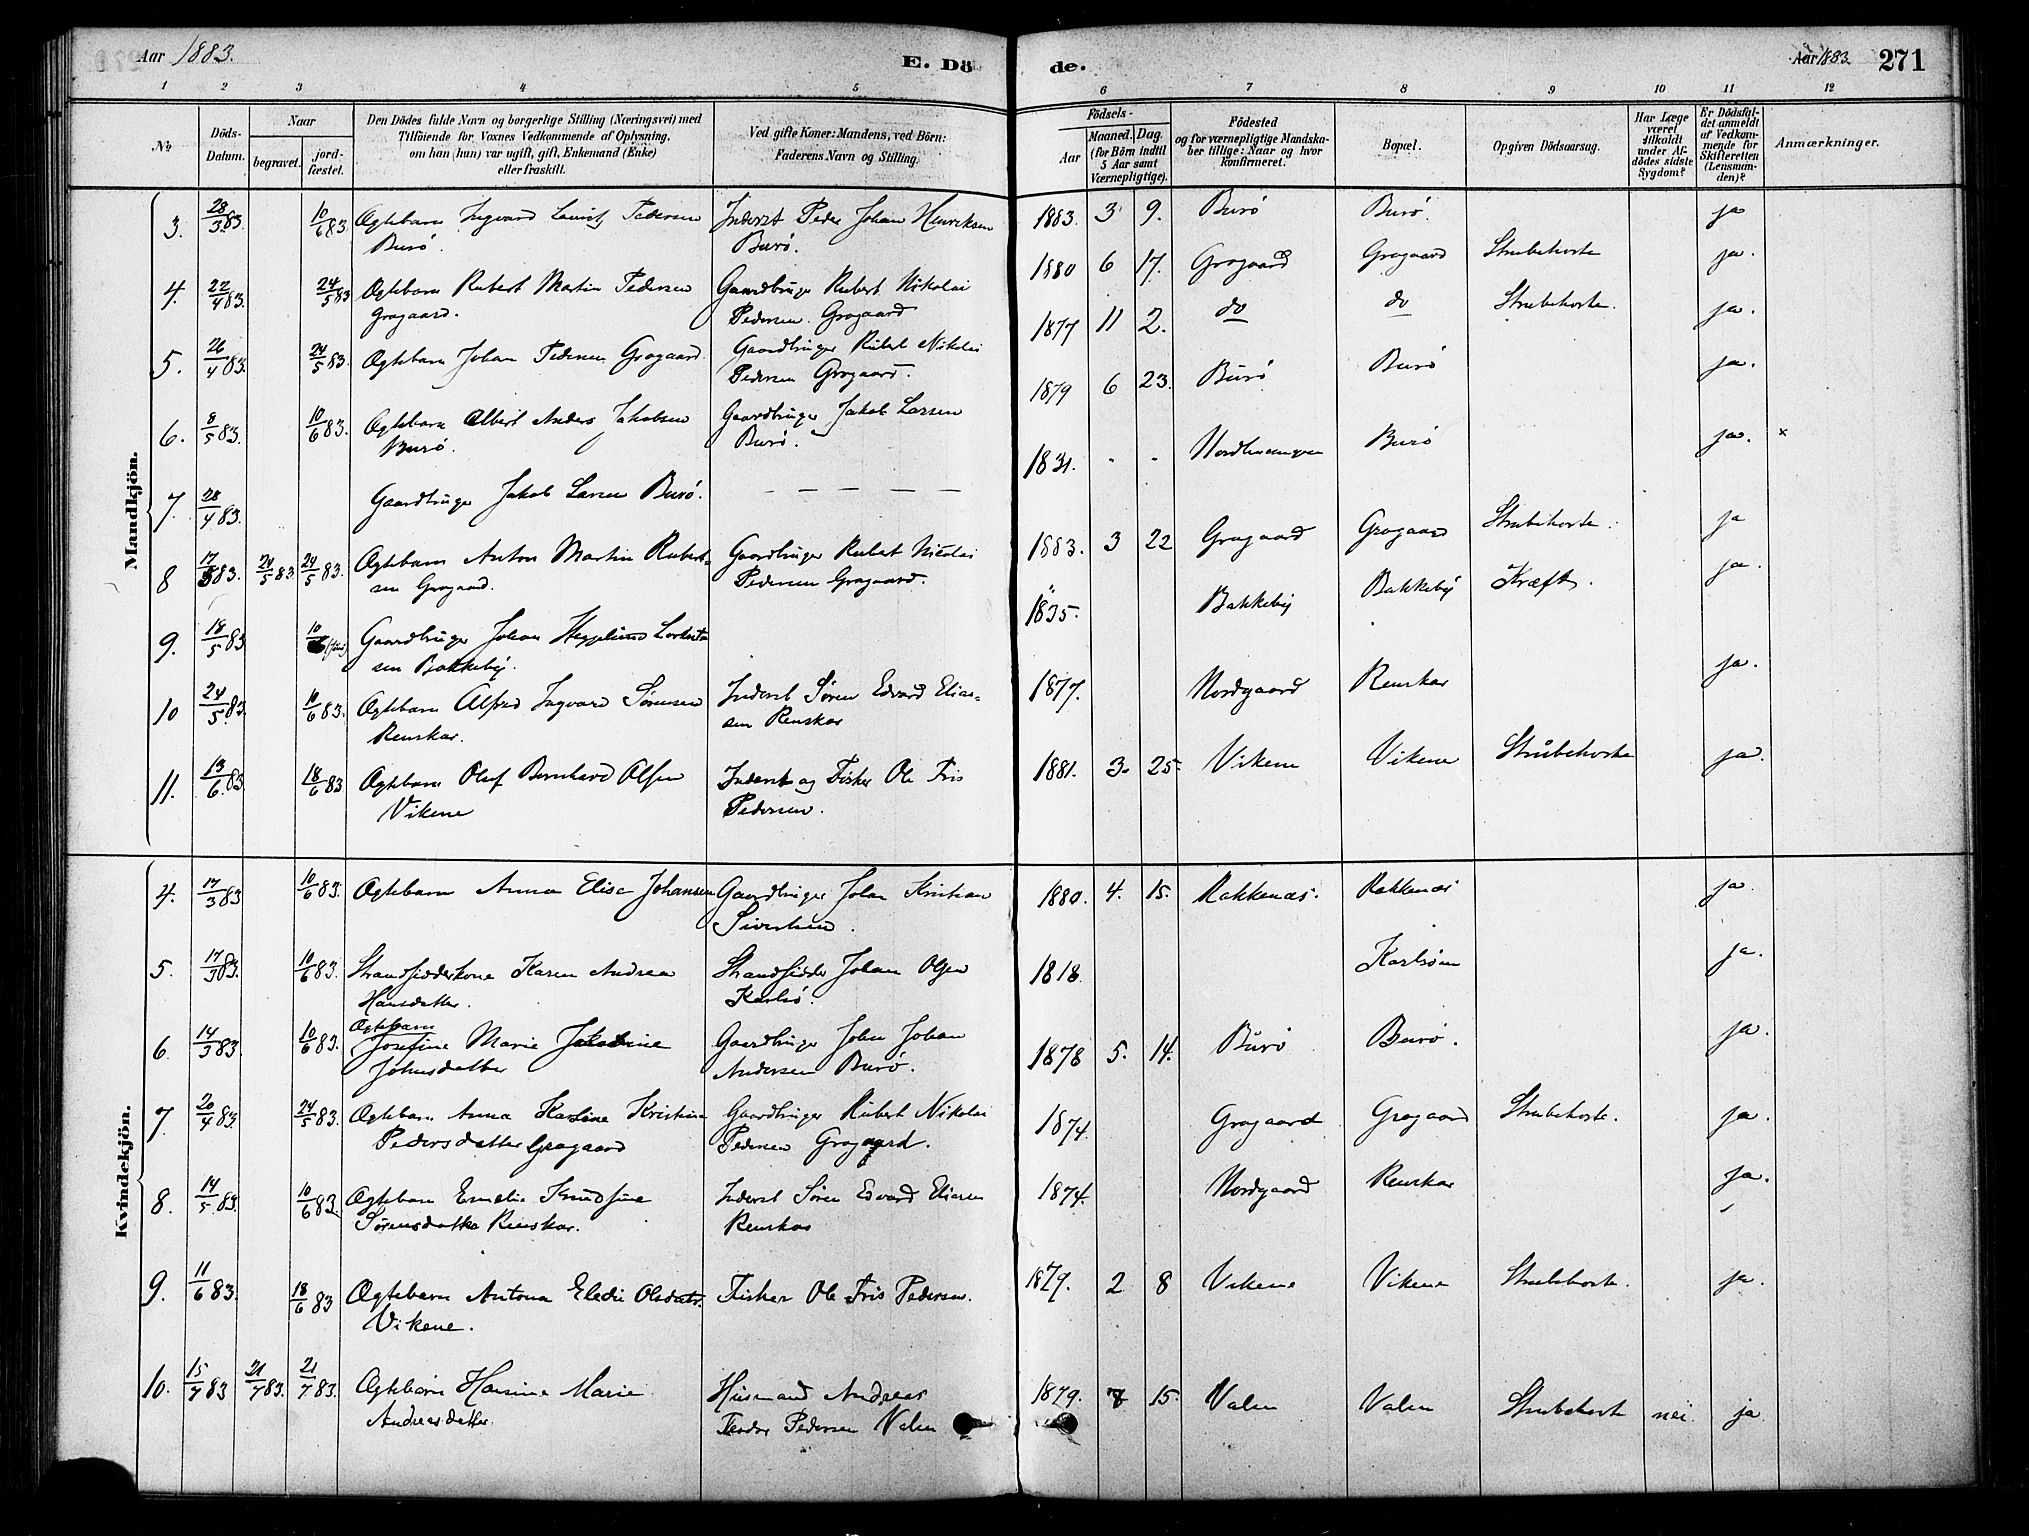 Aar 1883.
E. Dö
de.
Aar 1883.
271
1 2 3 4 5 6 7 8 9 10 11 12
No
Döds-Datum.
Naar
begravet.
jord-fæstet.
Den Dödes fulde Navn og borgerlige Stilling (Næringsvei) med
Tilföiende for Voxnes Vedkommende af Oplysning,
om han (hun) var ugift, gift, Enkemand (Enke)
eller fraskilt.
Ved gifte Koner: Mandens, ved Börn:
Faderens Navn og Stilling.
Födsels-
Aar
Maaned.
Dag.
(for Börn indtil
5 Aar samt
Værnepligtige).
Födested
og for værnepligtige Mandska-
ber tillige: Naar og hvor
konfirmeret.
Bopæl.
Opgiven Dödsaarsag.
Har Læge
været
tilkaldt
under Af-
dödes sidste
Sygdom?
Er Dödsfal-
det anmeldt
af Vedkom-
mende for
Skifteretten
(Lensman-
den)?
Anmærkninger.
Mandkjön.
3. 28/3 83. 10/6 83. Ægtebarn Ingvard Lauritz Pedersen Inderst Peder Johan Henriksen 1883. 3 9. Burö Burö. ja
Burö. Burö.
4. 22/4 83. 24/5 83 Ægtebarn Rubert Martin Pedersen Gaardbruger Rubert Nikolai 1880 6 17. Grogaard Grogaard Strubehoste ja.
Grogaard. Pedersen Grogaard
5. 26/4 83. 24/5 83. Ægtebarn Johan Pedersen Grogaard. Gaardbruger Rubert Nikolai 1877 11 2. do do Strubehoste. ja.
Pedersen Grogaard.
6. 8/5 83. 10/6 83. Ægtebarn Albert Anders Jakobsen Gaardbruger Jakob Larsen 1879 6 23. Burö Burö ja.
Burö. Burö.
7. 28/4 83. Gaardbruger Jakob Larsen Burö. — — — — 1831. " " Burö ja. ×
8 17/5 83. 24/5 83. 24/5 83. Ægtebarn Anton Martin Rubert- Gaardbruger Rubert Nicolai 1883. 3 22 Grogaard Grogaard Strubehoste. ja
sen Grogaard. Pedersen Grogaard.
9. 18/5 83 10/6 Gaardbruger Johan 1835. Bakkeby Bakkeby Kræft. ja.
sen Bakkeby.
10 24/5 83. 10/6 83. Ægtebarn Alfred Ingvard Sörensen Inderst Sören Edvard Elias- 1877. Nordgaard Renskar ja.
Renskar. sen Renskar
11. 13/6 83. 18/6 83 Ægtebarn Oluf Bernhard Olsen Inderst og Fisker Ole Fris 1881. 3. 25. Vikene Vikene Strubehoste ja.
Vikene Pedersen.
Kvindekjön.
4. 17/3 83 10/6 83. Ægtebarn Anna Elise Johansen Gaardbruger Johan Kristian 1880. 4. 15. Rakkenæs. Rakkenæs ja.
Sivertsen.
5. 17/3 83. 10/6 83. Strandsidderkone Karen Andrea Strandsidder Johan Olsen 1818. Karlsöen ja.
Hansdatter. Karlsö.
6. 14/3 83. 10/6 83. Ægtebarn
Josefine Marie Jakobine Gaardbruger John Johan 1878 5. 14. Burö Burö. ja.
Johnsdatter Andersen Burö.
7. 20/4 83. 24/5 83. Ægtebarn Anna Karline Kristina Gaardbruger Rubert Nikolai 1874. Grogaard Grogaard Strubehoste. ja.
Pedersdatter Grogaard Pedersen Grogaard.
8. 14/5 83. 10/6 83. Ægtebarn Emelie Knudsine Inderst Sören Edvard Eliasen 1874. Nordgaard Renskar ja.
Sörensdatter Renskar. Renskar
9. 11/6 83. 18/6 83 Ægtebarn Antona Eledie Olsdatr. Fisker Ole Fris Pedersen. 1879. 2 8 Vikene Vikene Strubehoste. ja.
Vikene.
10. 15/7 83 21/7 83. 21/7 83. Ægtebarn Hansine Marie Husmand Andreas 1879. 7 15. Valen Valen Strubehoste nei. ja
Andreasdatter. Teodor Pedersen Valen